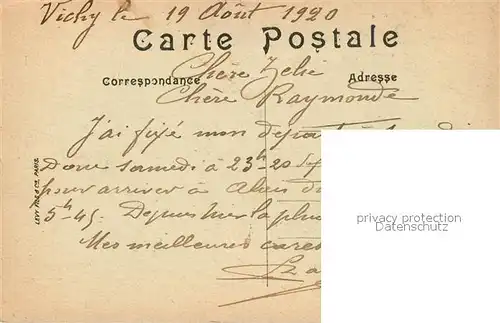 Vichy le 19 Août 1920
Carte Postale
Correspondance
Adresse
Chère Zélie
Chère Raymonde
J'ai fixé mon départ à
Donc samedi à 23h-20
pour arriver à Alais
5h-45. Depuis hier la plu
Mes meilleures cares
LEVY FILS & Cie, PARIS
privacy protection
datenschutz